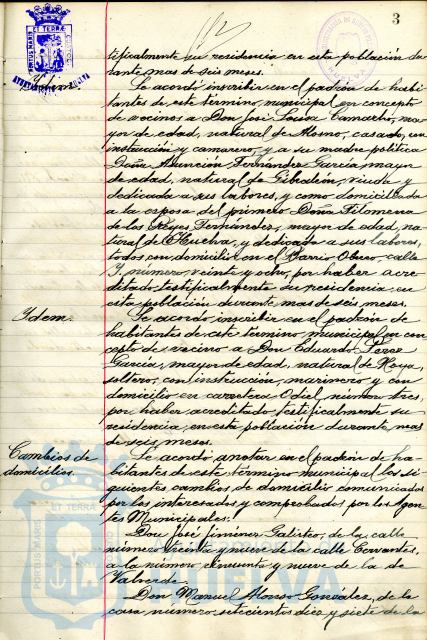 3
Ydem.
tifícalmente su residencia en esta población du-
rante mas de seis meses.
Se acordó inscribir en el padrón de habi-
tantes de este termino municipal en concepto
de vecinos a Don José Camacho, ma-
yor de edad, natural de Alosno, casado, con
instrucción y camarero, y a su madre politica
Doña Asunción Fernández García, mayor
de edad, natural de Gibraleón, viuda y
dedicada a sus labores, y como domiciliada
a la esposa del primero Doña Filomena
de los Reyes Fernández, mayor de edad, na-
tural de Huelva, y dedicada a sus labores,
todos con domicilio en el Barrio Obrero, calle
Y, número veinte y ocho, por haber acre-
ditado testifícalmente su residencia en
esta población durante mas de seis meses.
Ydem.
Se acordó inscribir en el padrón de
habitantes de este término municipal en con-
cepto de vecino a Don Eduardo
García, mayor de edad, natural de Moya,
soltero, con instrucción, marinero y con
domicilio en carretera Odiel número tres,
por haber acreditado testifícalmente su
residencia en esta población durante mas
de seis meses.
Cambios de
domicilios.
Se acordó anotar en el padrón de ha-
bitantes de este término municipal los si-
guientes cambios de domicilio comunicados
por los interesados y comprobados por los Agen-
tes Municipales:
Don José Jiménez Galisteo, de la calle
número treinta y nueve de la calle Cervantes,
a la número y nueve de la de
Valverde.
Don Manuel Alonso González, de la
casa número setecientos diez y siete de la
PORTUS MARIS ET TERRÆ
HUELVA